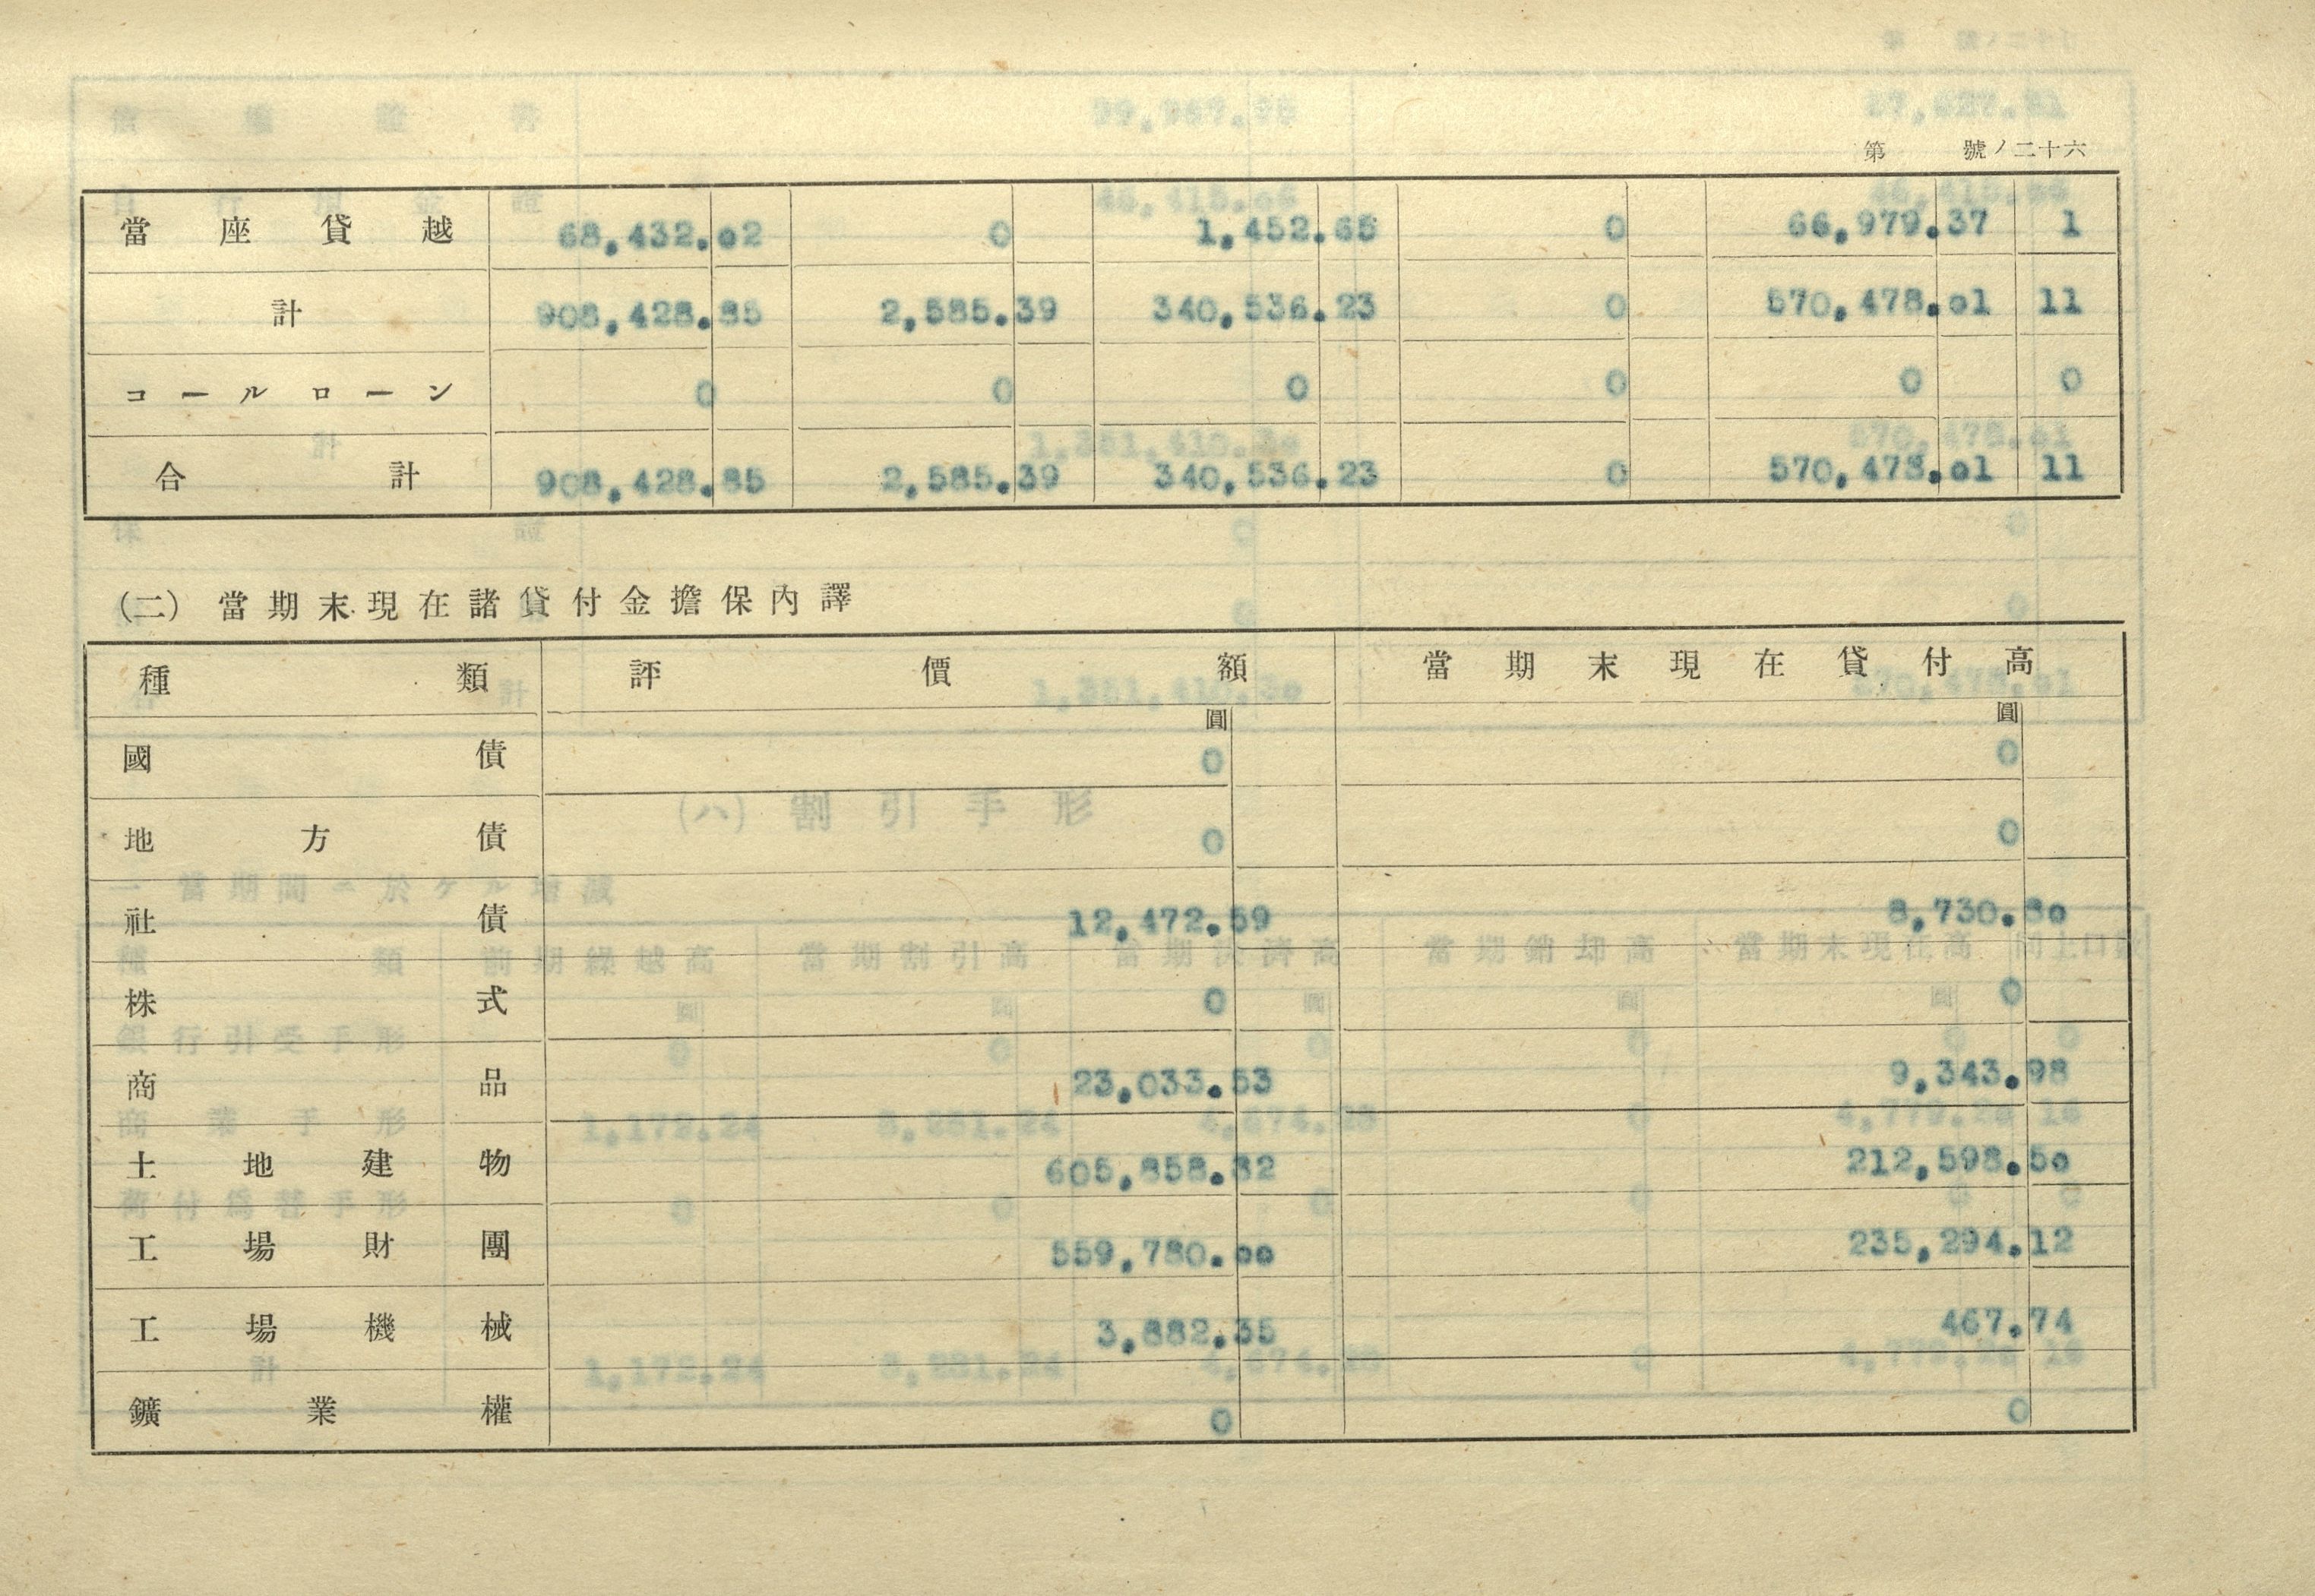 第 號ノ二十六
當座貸越 68,432.02 0 1,452.65 0 66,979.37 1
計 908,428.85 2,585.39 340,536.23 0 570,478.01 11
コールローン 0 0 0 0 0 0
合計 908,428.85 2,585.39 340,536.23 0 570,478.01 11
(二) 當期末現在諸貸付金擔保內譯
種類 評價額 當期末現在貸付高
圓 圓
國債 0 0
地方債 0 0
社債 12,472.59 8,730.80
株式 0 0
商品 23,033.53 9,343.98
土地建物 605,858.82 212,598.50
工場財團 559,780.00 235,294.12
工場機械 3,882.35 467.74
鑛業權 0 0